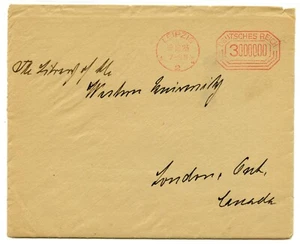 LEIPZIG
DEUTSCHES REICH
3000000
The Library of the
Western University
London, Ont.
Canada